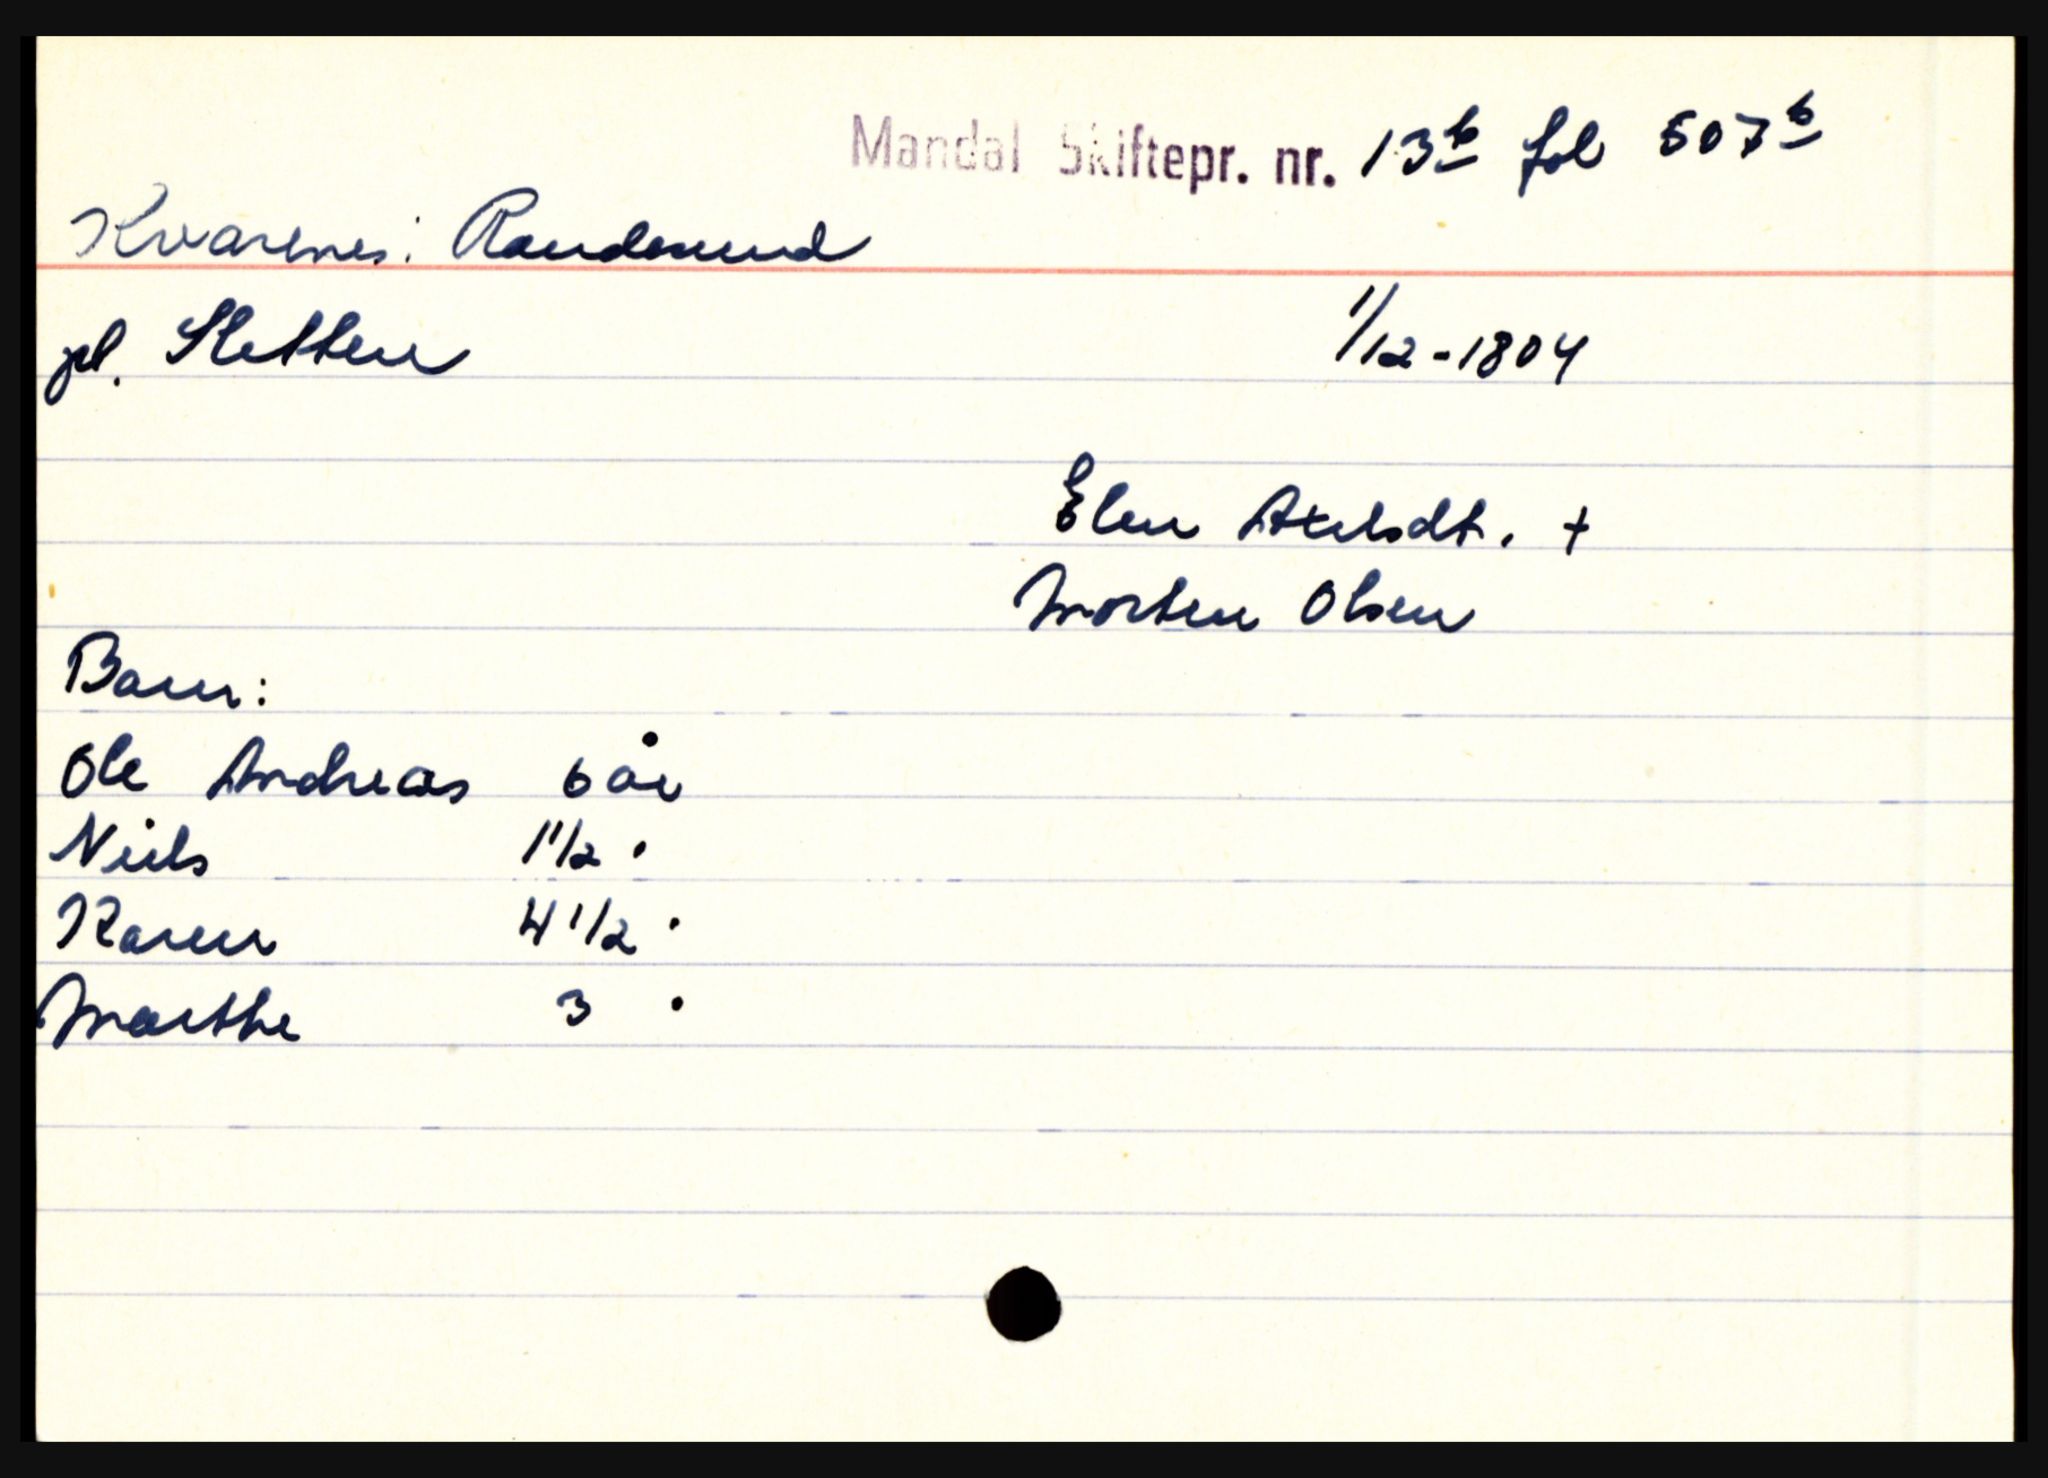 Mandal Skiftepr. nr. 13b fol 507b
Kvarenes: Randesund
pl. Sletten 1/12-1804
Elen Axelsdt. +
Morten Olsen
Barn:
Ole Andreas 6 år
Niels 1 1/2 "
Karen 4 1/2 "
Marthe 3 "